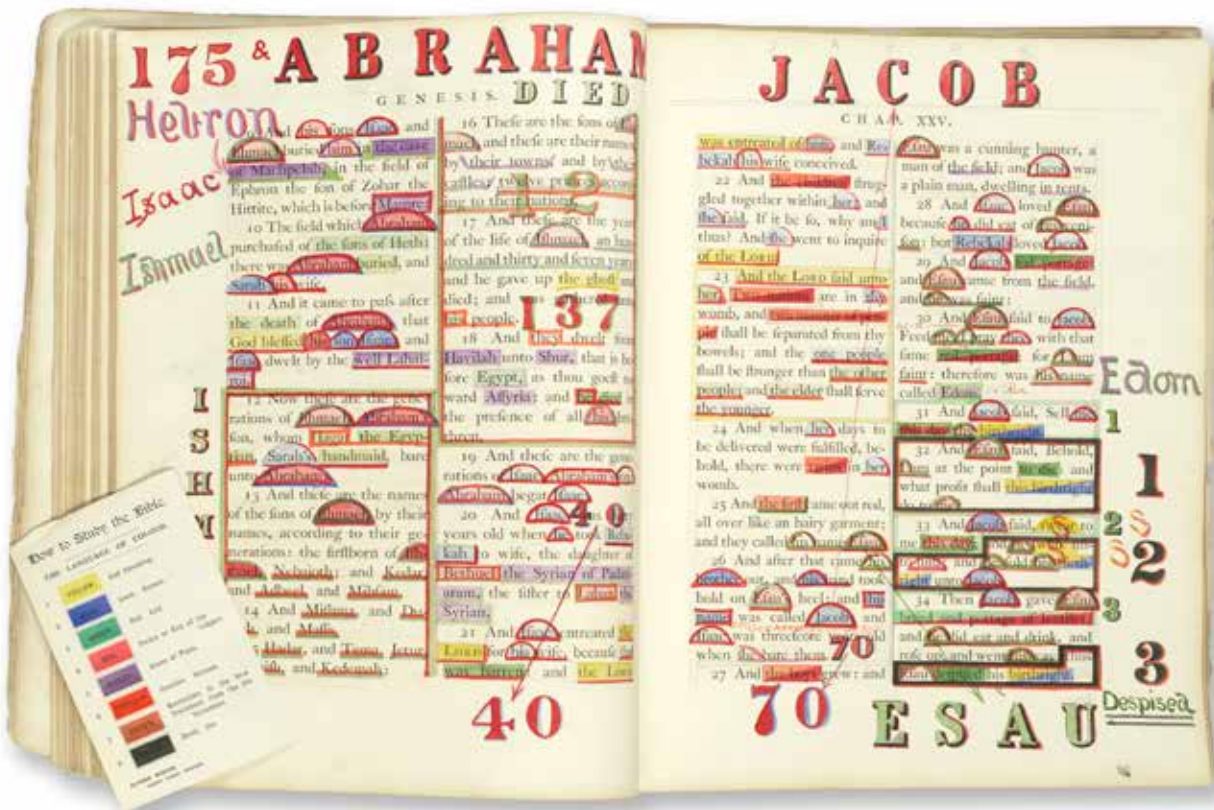 175 & ABRAHAM
GENESIS. DIED
Hebron
Isaac
Ishmael
And his sons Isaac and
Ishmael buried him in the cave
of Machpelah, in the field of
Ephron the son of Zohar the
Hittite, which is before Mamre:
10 The field which Abraham
purchased of the sons of Heth:
there was Abraham buried, and
Sarah his wife.
11 And it came to pass after
the death of Abraham, that
God blessed his son Isaac; and
Isaac dwelt by the well Lahai-
roi.
12 Now these are the gene-
rations of Ishmael, Abraham's
son, whom Hagar the Egyp-
tian, Sarah's handmaid, bare
unto Abraham.
13 And these are the names
of the sons of Ishmael, by their
names, according to their ge-
nerations: the firstborn of Ish-
Nebajoth; and Kedar,
and Adbeel, and Mibsam,
14 And Mishma, and Du-
and Massa,
Hadar, and Tema, Jetur,
and Kedemah:
ISHM
16 These are the sons of
and these are their names,
by their towns, and by their
castles; twelve princes accord-
ing to their nations.
12
17 And these are the years
of the life of Ishmael, an hun-
dred and thirty and seven years:
and he gave up the ghost and
died; and was gathered unto
his people.
137
18 And they dwelt from
Havilah unto Shur, that is be-
fore Egypt, as thou goest to-
ward Assyria: and he died in
the presence of all his bre-
thren.
19 And these are the gene-
rations of Isaac, Abraham's son:
Abraham begat Isaac:
20 And Isaac was forty
40
years old when he took Rebe-
kah to wife, the daughter of
Bethuel the Syrian of Padan-
aram, the sister to Laban the
Syrian.
21 And Isaac entreated the
LORD for his wife, because she
was barren: and the LORD
40
How to Study the Bible.
THE LANGUAGE OF COLOURS.
YELLOW
BLUE
GREEN
RED
JACOB
CHAP. XXV.
was entreated of him, and Re-
bekah his wife conceived.
22 And the children strug-
gled together within her; and
she said, If it be so, why am I
thus? And she went to inquire
of the LORD.
23 And the LORD said unto
her, Two nations are in thy
womb, and two manner of peo-
ple shall be separated from thy
bowels; and the one people
shall be stronger than the other
people; and the elder shall serve
the younger.
24 And when her days to
be delivered were fulfilled, be-
hold, there were twins in her
womb.
25 And the first came out red,
all over like an hairy garment;
and they called his name Esau.
26 And after that came his
brother out, and his hand took
hold on Esau's heel; and his
name was called Jacob: and
Isaac was threescore years old
when she bare them.
70
27 And the boys grew: and
70
Esau was a cunning hunter, a
man of the field; and Jacob was
a plain man, dwelling in tents.
28 And Isaac loved Esau,
because he did eat of his veni-
son: but Rebekah loved Jacob.
29 And Jacob sod pottage:
and Esau came from the field,
and he was faint:
30 And Esau said to Jacob,
Feed me, I pray thee, with that
same red pottage; for I am
faint: therefore was his name
called Edom.
Edom
31 And Jacob said, Sell me
this day thy birthright.
1
32 And Esau said, Behold,
I am at the point to die: and
what profit shall this birthright
1
33 And Jacob said, Swear to
me this day; and he sware
and he sold his birth-
right unto Jacob.
2
2
34 Then Jacob gave Esau
bread and pottage of lentiles;
and he did eat and drink, and
rose up, and went his way: thus
Esau despised his birthright.
3
3
Despised
ESAU